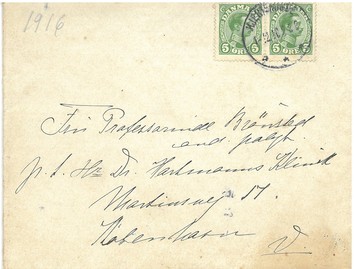 1916
DANMARK DANMARK
5 ØRE 5 5 ØRE 5
Fru Professorinde Brønsted
p. t. Hr Dr. Hartmanns Klinik
Martinsvej 17.
København V.